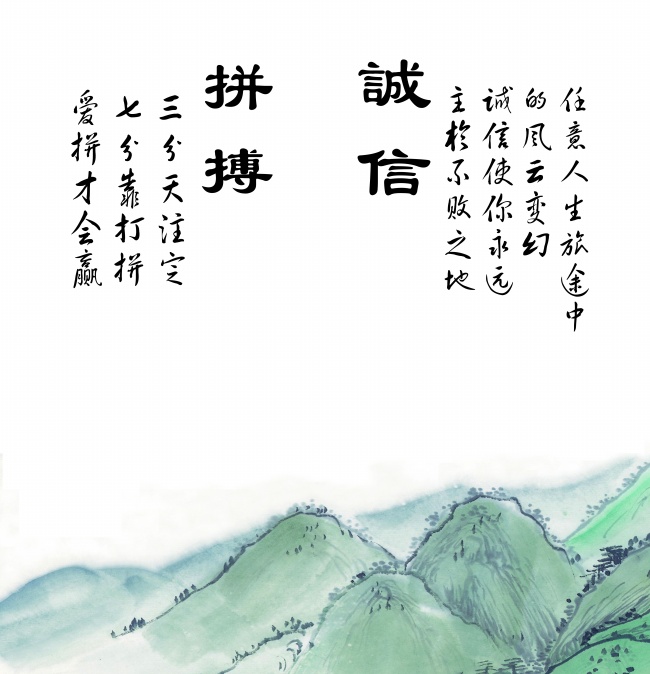 誠信
任意人生旅途中
的风云变幻
诚信使你永远
主於不败之地
拼搏
三分天注定
七分靠打拼
爱拼才会赢